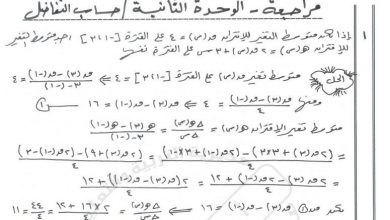 مراجعة - الوحدة الثانية / حساب التفاضل
١ إذا كان متوسط التغير للإقتران ق(س) = ٤ على الفترة [-٣،١] احسب متوسط التغير
للإقتران هـ(س) = ٢ق(س) + ٣س على الفترة نفسها
الحل
متوسط تغير ق(س) على الفترة [-٣،١] = ٤ ⇐ (ق(٣) - ق(-١)) / (٣ - (-١)) = ٤
ومنها (ق(٣) - ق(-١)) / ٤ = ٤ ⇐ ق(٣) - ق(-١) = ١٦ ①
متوسط تغير الإقتران هـ(س) = Δهـ(س) / Δس = (هـ(٣) - هـ(-١)) / (٣ - (-١))
= (٢ق(٣) + ٣×٣ - (٢ق(-١) + ٣×-١)) / ٤ = (٢ق(٣) + ٩ - ٢ق(-١) - (-٣)) / ٤
= (٢ق(٣) - ٢ق(-١) + ١٢) / ٤ = (٢(ق(٣) - ق(-١)) + ١٢) / ٤
لكن ق(٣) - ق(-١) = ١٦ ⇐ Δهـ(س) / Δس = (٢×١٦ + ١٢) / ٤ = ٤٤ / ٤ = ١١